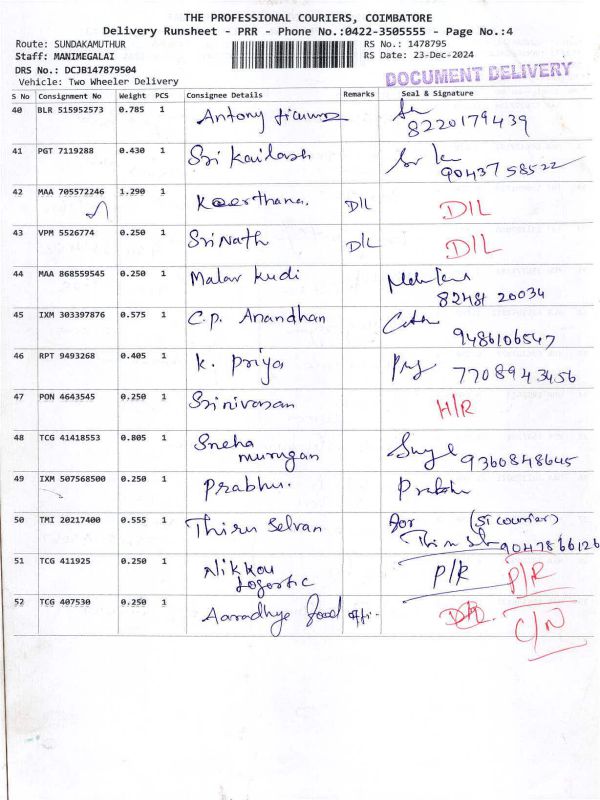 THE PROFESSIONAL COURIERS, COIMBATORE
Delivery Runsheet - PRR - Phone No.:0422-3505555 - Page No.:4
Route: SUNDAKAMUTHUR RS No.: 1478795
Staff: MANIMEGALAI RS Date: 23-Dec-2024
DRS No.: DCJB147879504
Vehicle: Two Wheeler Delivery
DOCUMENT DELIVERY
S No Consignment No Weight PCS Consignee Details Remarks Seal & Signature
40 BLR 515952573 0.785 1 Antony
8220179439
41 PGT 7119288 0.430 1 Sri Kailash
9043758522
42 MAA 705572246 1.290 1 Keerthana. D/L D/L
43 VPM 5526774 0.250 1 Sri Nath D/L D/L
44 MAA 868559545 0.250 1 Malar Kudi
82481 20034
45 IXM 303397876 0.575 1 C.P. Anandhan
9486106547
46 RPT 9493268 0.405 1 K. Priya
7708943456
47 PON 4643545 0.250 1 Srinivasan H/R
48 TCG 41418553 0.805 1 Sneha
murugan 9360848645
49 IXM 507568500 0.250 1 Prabhu.
50 TMI 20217400 0.555 1 Thiru Selvan for (ST courier)
9047866126
51 TCG 411925 0.250 1 Nikkou P/R P/R
Logostic
52 TCG 407530 0.250 1 Aaradhye food offi. C/N